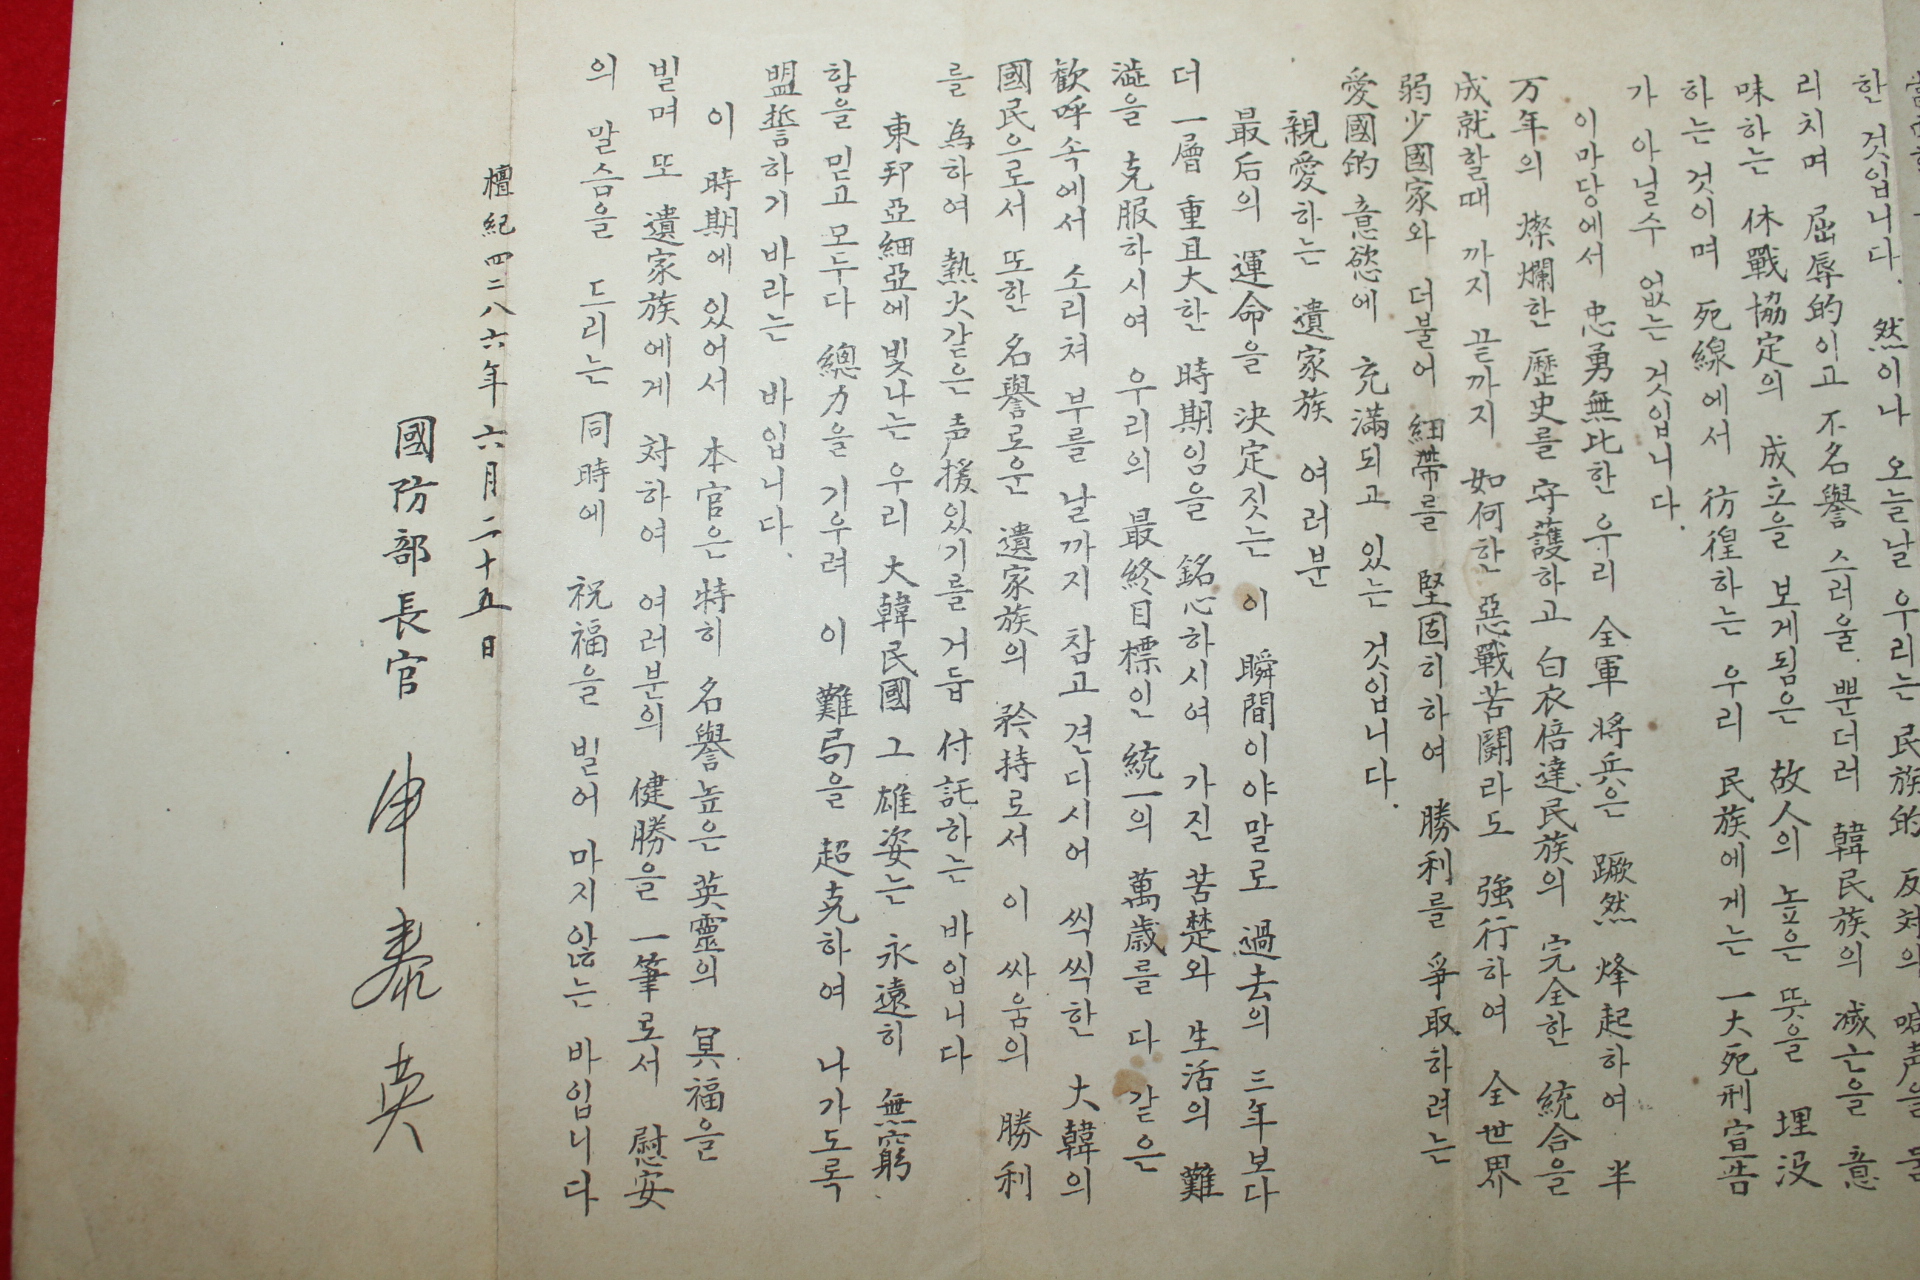 한 것입니다. 然이나 오늘날 우리는 民族的 反対의 喊声을
리치며 屈辱的이고 不名譽스러울 뿐더러 韓民族의 滅亡을 意
味하는 休戰協定의 成立을 보게됨은 故人의 높은 뜻을 埋没
하는 것이며 死線에서 彷徨하는 우리 民族에게는 一大死刑宣告
가 아닐수 없는 것입니다.
이마당에서 忠勇無比한 우리 全軍 將兵은 蹶然 烽起하여 半
万年의 燦爛한 歷史를 守護하고 白衣倍達民族의 完全한 統合을
成就할때 까지 끝까지 如何한 惡戰苦鬪라도 強行하여 全世界
弱少國家와 더불어 紐帶를 堅固히하여 勝利를 爭取하려는
愛國的 意慾에 充滿되고 있는 것입니다.
親愛하는 遺家族 여러분
最后의 運命을 決定짓는 이 瞬間이야말로 過去의 三年보다
더 一層 重且大한 時期임을 銘心하시여 가진 苦楚와 生活의 難
澁을 克服하시여 우리의 最終目標인 統一의 萬歲를 다 같은
歓呼속에서 소리쳐 부를 날까지 참고 견디시어 씩씩한 大韓의
國民으로서 또한 名譽로운 遺家族의 矜持로서 이 싸움의 勝利
를 為하여 熱火같은 声援있기를 거듭 付託하는 바입니다
東邦亞細亞에 빛나는 우리 大韓民國 그 雄姿는 永遠히 無窮
함을 믿고 모두다 總力을 기우려 이 難局을 超克하여 나가도록
盟誓하기 바라는 바입니다.
이 時期에 있어서 本官은 特히 名譽높은 英靈의 冥福을
빌며 또 遺家族에게 対하여 여러분의 健勝을 一筆로서 慰安
의 말슴을 드리는 同時에 祝福을 빌어 마지않는 바입니다
檀紀四二八六年 六月二十五日
國防部長官 申泰英